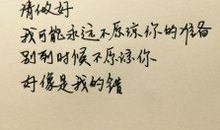 请做好
我可能永远不原谅你的准备
别到时候不原谅你
好像是我的错